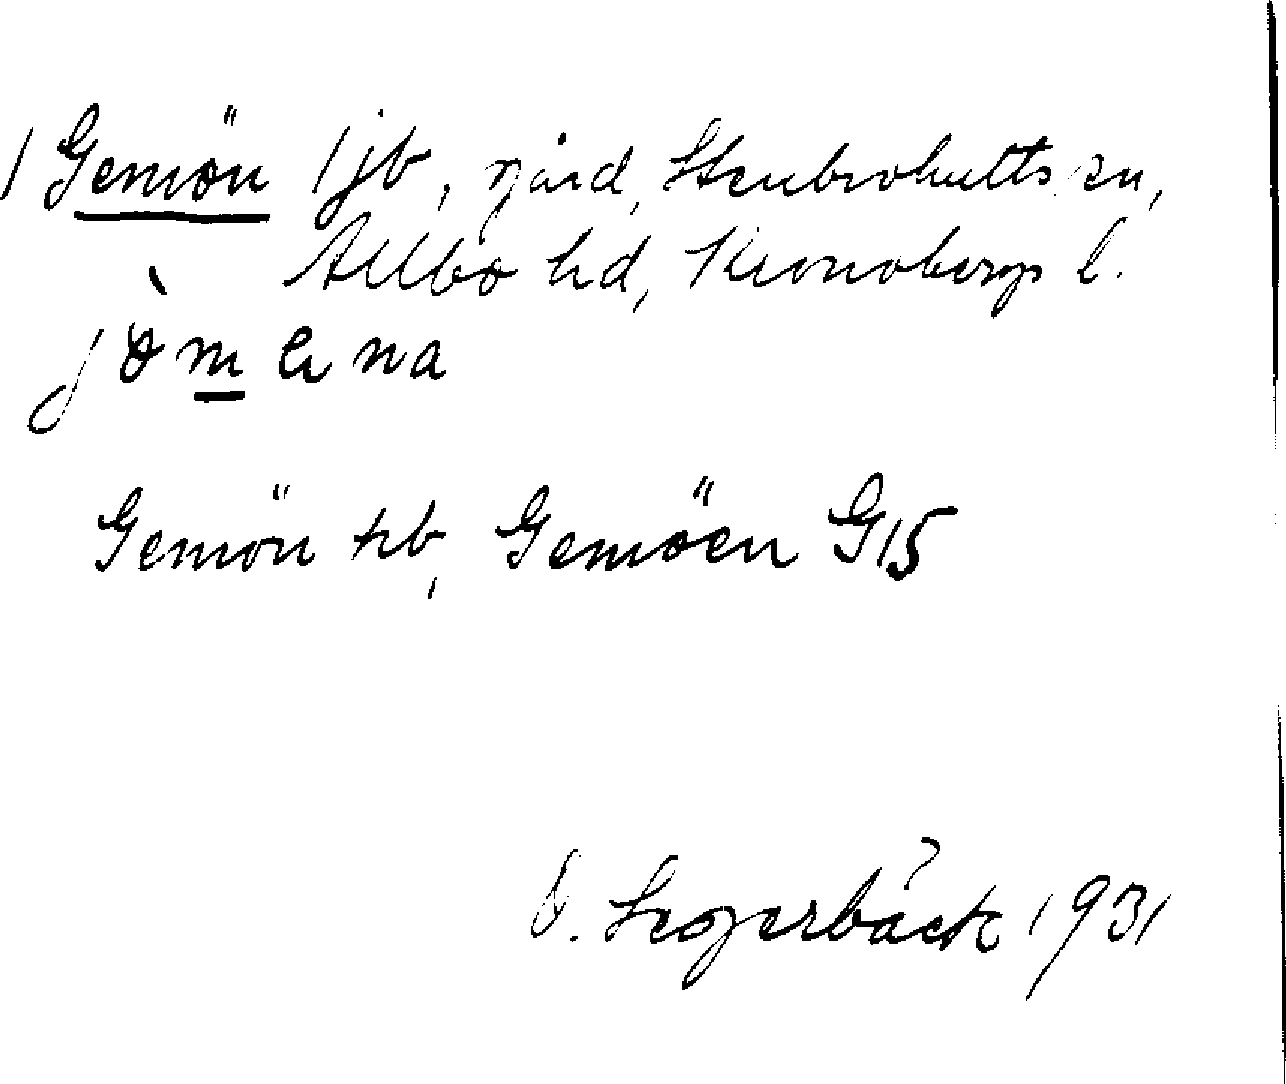 1 Gemön 1 jb, gård, Stenbrohults sn,
Allbo hd, Kronobergs l.
Gemön hb, Gemöen G15
Segerbäck 1931